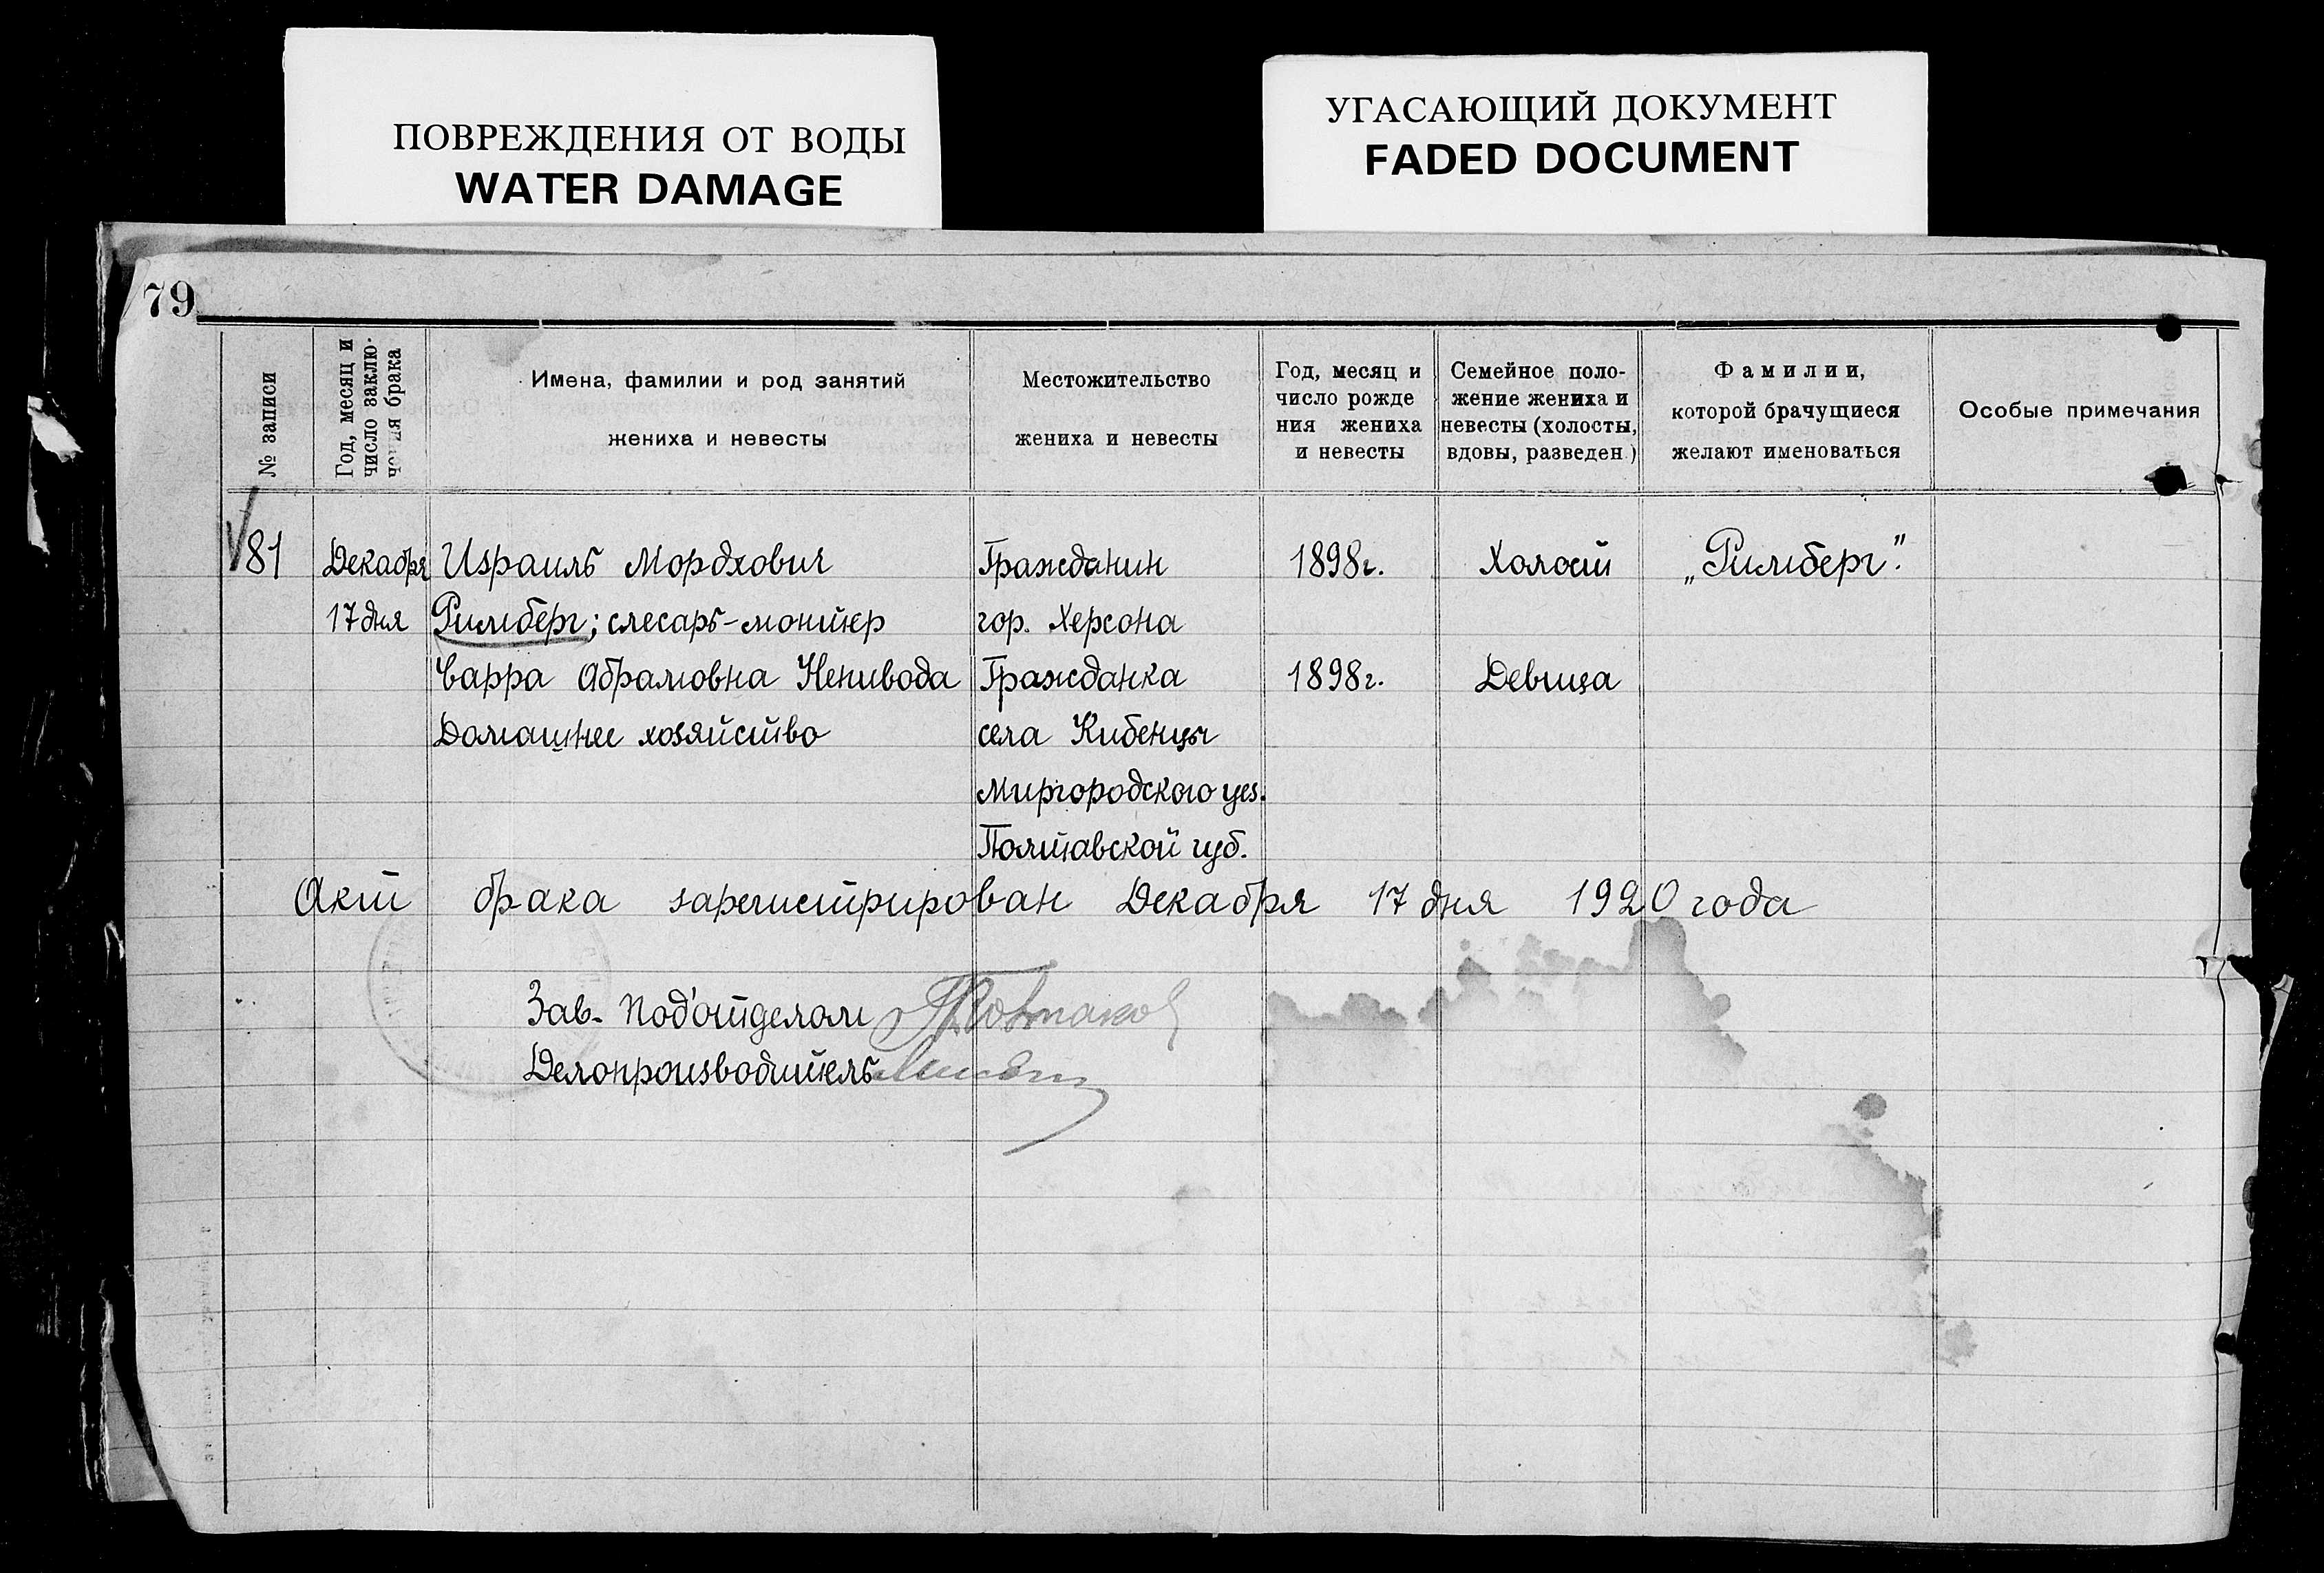 ПОВРЕЖДЕНИЯ ОТ ВОДЫ
WATER DAMAGE
УГАСАЮЩИЙ ДОКУМЕНТ
FADED DOCUMENT
79
№ записи
Год, месяц и
число заклю-
чения брака
Имена, фамилии и род занятий
жениха и невесты
Местожительство
жениха и невесты
Год, месяц и
число рожде
ния жениха
и невесты
Семейное поло-
жение жениха и
невесты (холосты,
вдовы, разведен.)
Фамилии,
которой брачущиеся
желают именоваться
Особые примечания
81 Декабря Израиль Мордхович Гражданин 1898г. Холост „Римберг".
17 дня Римберг; слесарь-монтер гор. Херсона
Сарра Абрамовна Непивода Гражданка 1898г. Девица
Домашнее хозяйство села Кибенцы
Миргородского уез.
Полтавской губ.
Акт брака зарегистрирован Декабря 17 дня 1920 года
Зав. Под'отделом
Делопроизводитель